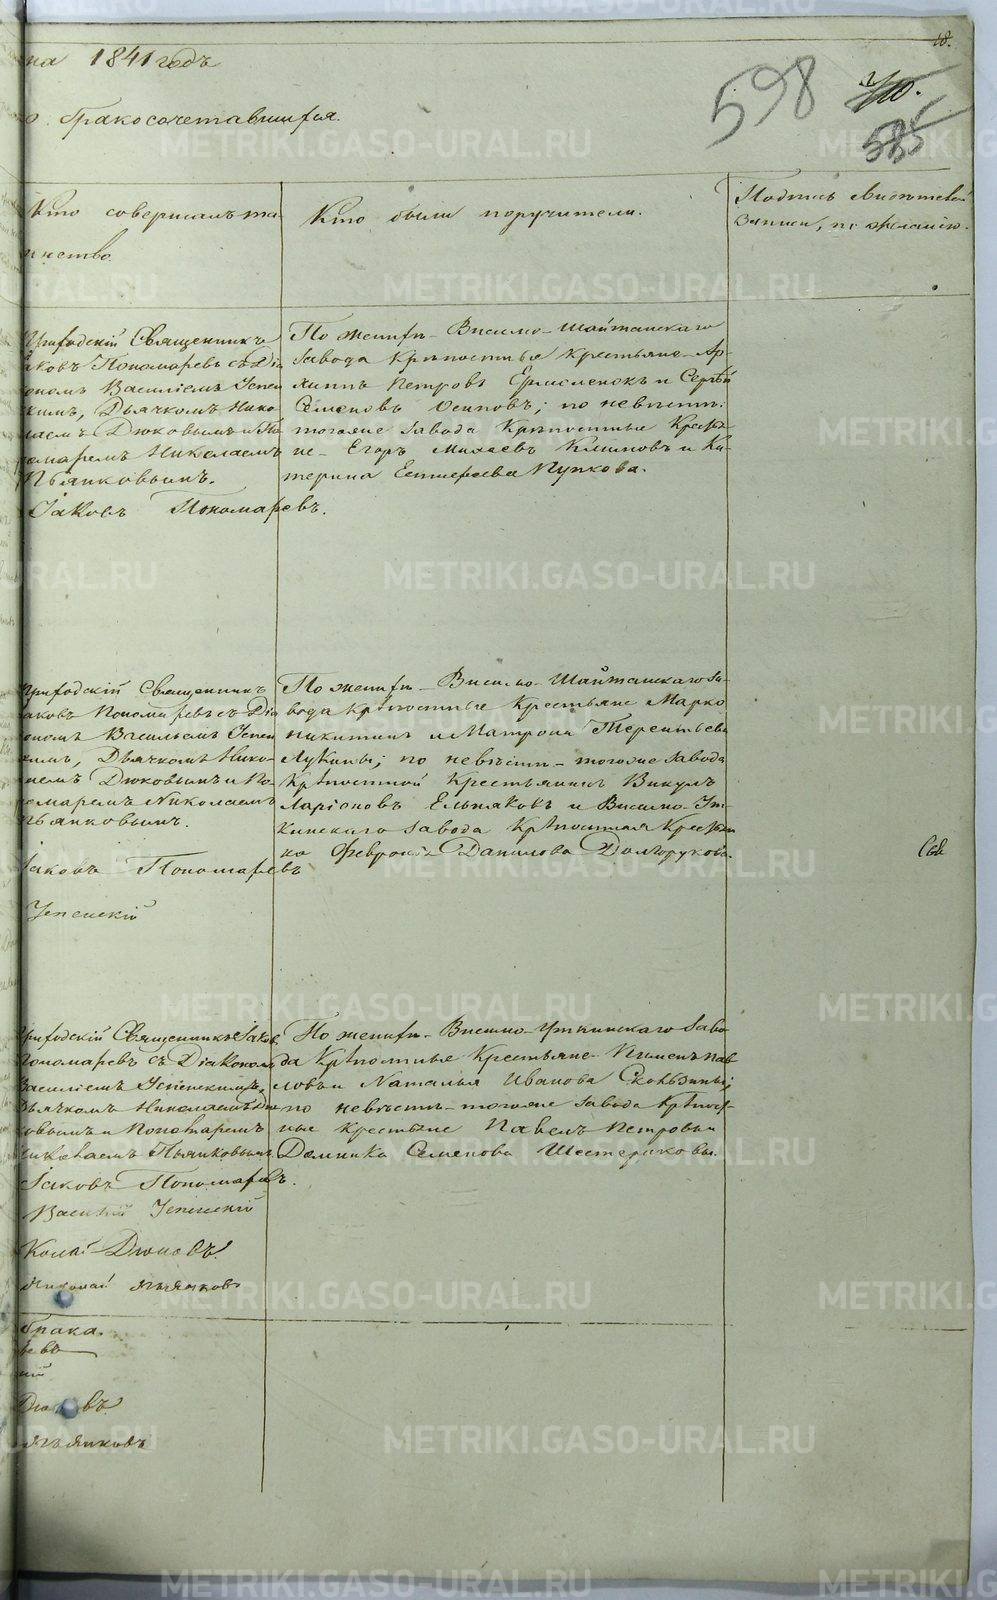 18.
на 1841 годъ
598
585
о бракосочетавшихся.
Кто совершалъ та-
инство
Кто были поручители.
Подпись свидѣтелей
записи, по желанію.
Приходскій Священникъ
Іаковъ Пономаревъ съ Діа
кономъ Василіемъ Успен
скимъ, Дьячкомъ Нико
лаемъ Дюковымъ и По
номаремъ Николаемъ
Пьянковымъ.
Іаковъ Пономаревъ.
По женихѣ Висимо-Шайтанскаго
завода Крѣпостные крестьяне Ар-
хиппъ Петровъ и Сергѣй
Семеновъ Осиповъ; по невѣстѣ:
тогоже завода Крѣпостные Кресть
не Егоръ Климовъ и Ка-
терина Пупкова.
Приходскій Священникъ
Іаковъ Пономаревъ съ Діа
кономъ Васильемъ Успен
скимъ, Дьячкомъ Нико-
лаемъ Дюковымъ и По-
номаремъ Николаемъ
Пьянковымъ.
Іаковъ Пономаревъ
Успенскій
По женихѣ Висимо-Шайтанскаго за-
вода крѣпостные Крестьяне Марко
Никитинъ и Матрона Терентьева
Лукины; по невѣстѣ тогоже завода
Крѣпостной Крестьянинъ Викулъ
Ларіоновъ Ельняковъ и Висимо-Ут-
кинскаго завода Крѣпостная Крестьян
ка Феврония Данилова Долгорукова.
Приходскій Священникъ Іаковъ
Пономаревъ съ Діакономъ
Василіемъ Успенскимъ,
Дьячкомъ Николаемъ Дю
ковымъ и Пономаремъ
Николаемъ Пьянковымъ
Іаковъ Пономаревъ.
Василій Успенскій
Дюковъ
Николай Пьянковъ
По женихѣ Висимо-Уткинскаго заво
да Крѣпостные Крестьяне Пименъ Пав
ловъ и Наталья Иванова Скользины;
по невѣстѣ тогоже завода Крѣпост-
ные крестьяне Павелъ Петровъ и
Домника Семенова Шестериковы.
брака.
евъ
ій
Дюковъ
Пьянковъ
METRIKI.GASO-URAL.RU